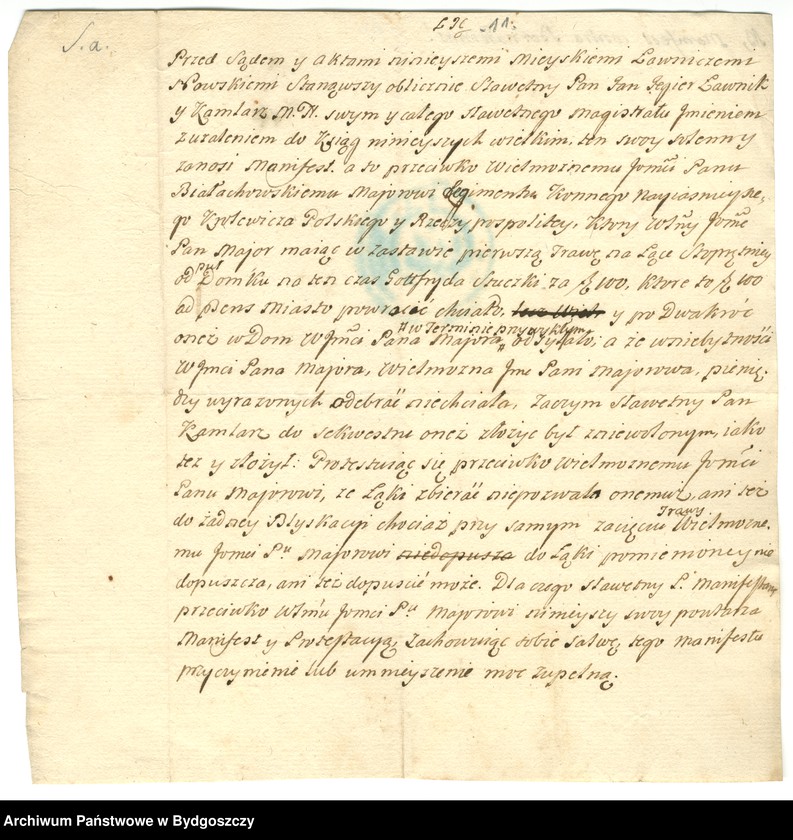 11.
S. a.
Przed Sądem y Aktami ninieyszemi Mieyskiemi Ławniczemi
Nowskiemi Stanąwszy oblicznie Sławetny Pan Jan Ławnik
y Kamlarz M. N. swym y całego sławetnego Magistratu Jmieniem
z użaleniem do Xsiąg ninieyszych wielkim, ten swoy solenny
zanosi Manifest. a to przeciwko Wielmożnemu Jomci Panu
Białachowskiemu Majorowi Regimentu Konnego Nayiasnieysze,
go Krolewicza Polskiego y Rzeczy pospolitey, Ktory Wlny Jome
Pan Major maiąc w zastawie pierwszą Trawę na Łące
od Pul Domku na ten czas Gottfryda Stuczki za f. 100. Ktore to f. 100
ad Dens Miasto powracić chciało, y po Dwakroć
oneż w Dom WJmci Pana Majora # w Terminie przywykłym # odsyłało; a że w niebytności
WJmci Pana Majora, Wielmożna Jme Pani Majorowa, pienię,
dzy wyrażonych odebrać niechciała, zaczym Sławetny Pan
Kamlarz do sekwestru oneż złożyć był zniewolonym, iako
też y złożył: Protestuiąc się przeciwko Wielmożnemu Jomci
Panu Majorowi, że Łąki zbierać niepozwala onemuż, ani też
do żadney Btyskacyi chociaż przy samym zacięciu Trawy Wielmożne,
mu Jomci Pu Majorowi niedopusza do Łąki pomienioney nie
dopuszcza, ani też dopuscić może. Dla czego Sławetny P. Manifestans
przeciwko Wlmu Jomci Pu Majorowi ninieyszy swoy powtarza
Manifest y Protestacyią, zachowuiąc sobie salwę tego manifestu
przyczynienie lub umnieyszenie moc zupełną.
Archiwum Państwowe w Bydgoszczy